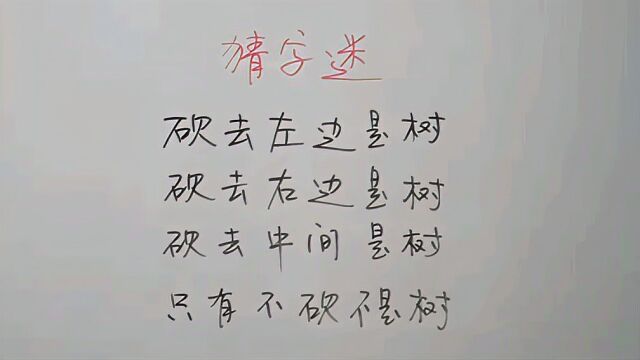 猜字迷
砍去左边是树
砍去右边是树
砍去中间是树
只有不砍不是树